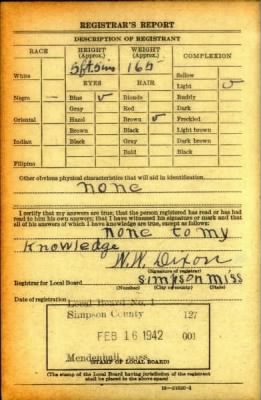 REGISTRAR'S REPORT
DESCRIPTION OF REGISTRANT
RACE HEIGHT (Approx.) WEIGHT (Approx.) COMPLEXION
5ft 165
White Sallow
EYES HAIR Light
Negro Blue Blonde Ruddy
Gray Red Dark
Oriental Hazel Brown Freckled
Brown Black Light brown
Indian Black Gray Dark brown
Bald Black
Filipino
Other obvious physical characteristics that will aid in identification
none
I certify that my answers are true; that the person registered has read or has had
read to him his own answers; that I have witnessed his signature or mark and that
all of his answers of which I have knowledge are true, except as follows:
none to my
Knowledge
W. W. Dixon
(Signature of registrar)
Registrar for Local Board simpson miss
(Number) (City or county) (State)
Date of registration
Local Board No. 1
Simpson County 127
FEB 16 1942 001
Mendenhall, Miss.
(STAMP OF LOCAL BOARD)
(The stamp of the Local Board having jurisdiction of the registrant
shall be placed in the above space)